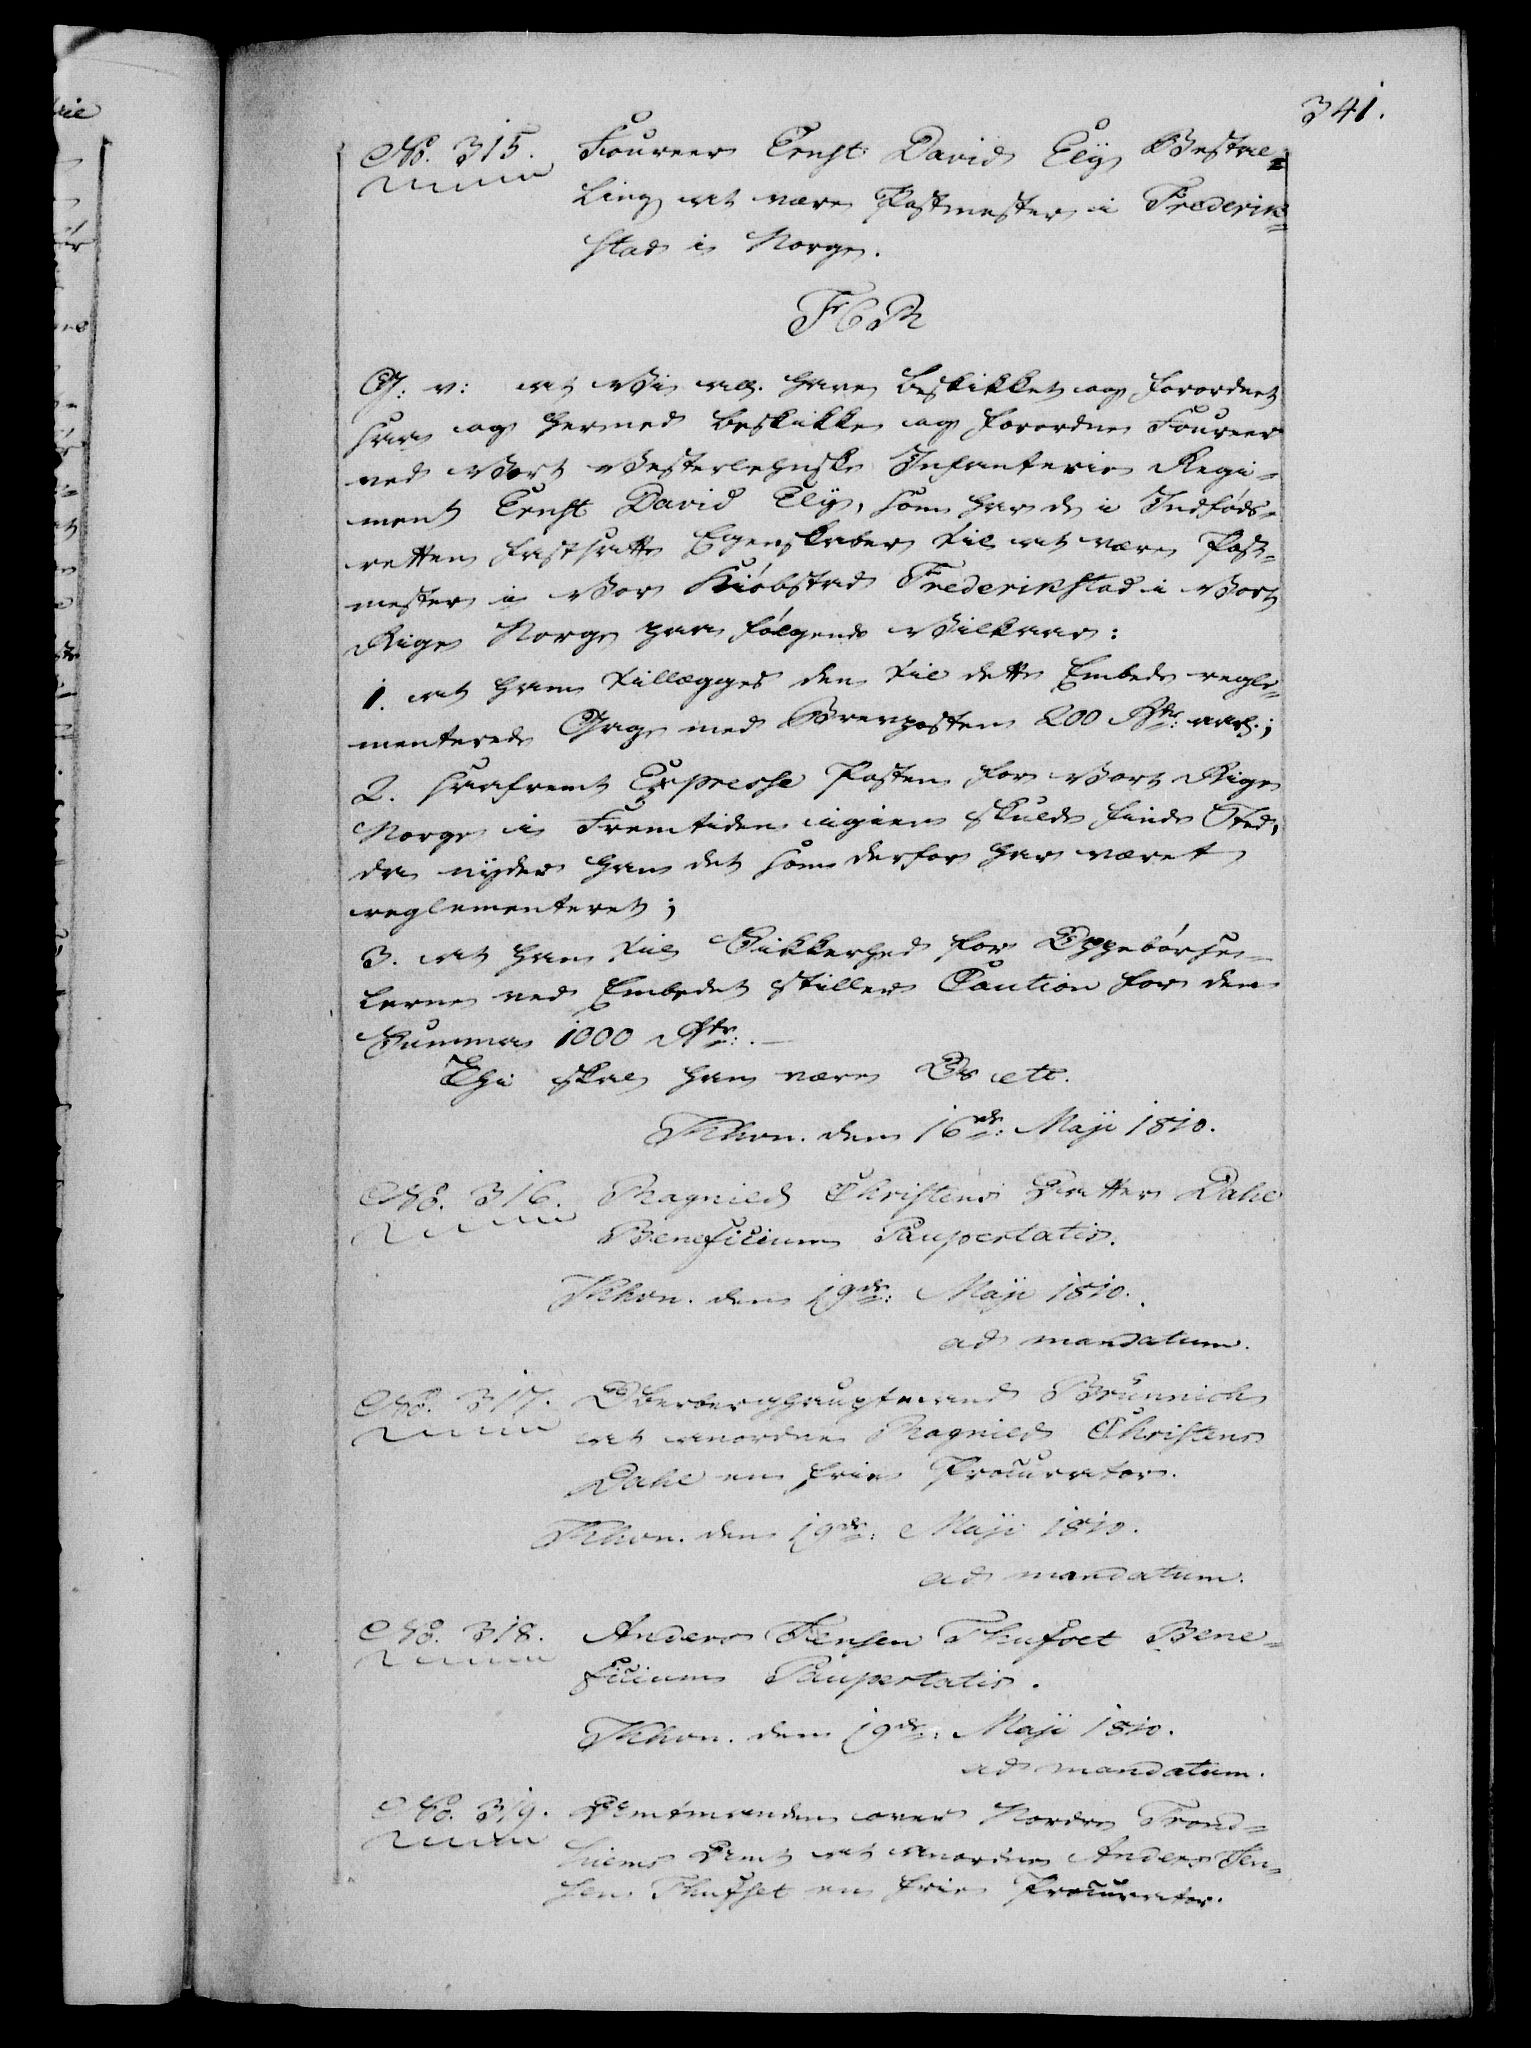 341.
No. 315. Foureer Ernst David Ely Bestal=
ling at være Postmester i Frederik=
stad i Norge.
F6R
G: v: at Vi all. have beskikket og forordnet
saa og hermed beskikke og forordne Foureer
ved Vort Vesterlehnske Infanterie Regi=
ment Ernst David Ely, som har de i Indføds=
retten fastsatte Egenskaber til at være Post=
mester i Vor Kiøbstad Frederikstad i Vort
Rige Norge paa følgende Vilkaar:
1. at ham tillægges den til dette Embede regle=
menterede Gage med Brevposten 200 Rdr: aarl.;
2. saafremt Expresse Posten for Vort Rige
Norge i Fremtiden igien skulde finde Sted,
da nyder han det som derfor har været
reglementeret;
3. at han til Sikkerhed for Oppebørse=
lerne ved Embedet stiller Caution for den
Summa 1000 Rdr:. —
Thi skal han være Os etc.
Khvn. den 16de: Maji 1810.
No. 316. Ragnild Christens Datter Dahl
Beneficium Paupertatis.
Khvn. den 19de: Maji 1810.
ad mandatum.
No. 317. Oberberghauptmand Brünnich
at anordne Ragnild Christens
Dahl en frie Procurator.
Khvn. den 19de: Maji 1810.
ad mandatum.
No. 318. Anders Jensen Thufset Bene=
ficium Paupertatis.
Khvn. den 19de: Maji 1810.
ad mandatum.
No. 319. Amtmanden over Nordre Trond=
hiems Amt at anordne Anders Jen=
sen Thufset en frie Procurator.